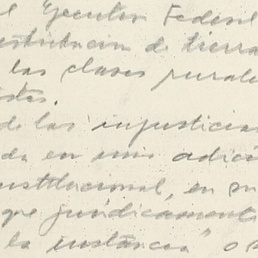 l Ejecutivo Federal
estitucion de tierra
las clases rurale
stas.
de las injusticias
da en una adici
nstitucional, en su
que juridicamente
la instancia" o